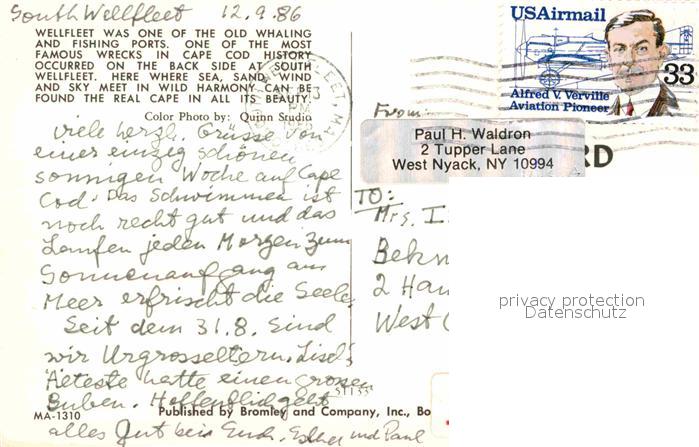 South Wellfleet 12.9.86
WELLFLEET WAS ONE OF THE OLD WHALING
AND FISHING PORTS. ONE OF THE MOST
FAMOUS WRECKS IN CAPE COD HISTORY
OCCURRED ON THE BACK SIDE AT SOUTH
WELLFLEET. HERE WHERE SEA, SAND, WIND
AND SKY MEET IN WILD HARMONY CAN BE
FOUND THE REAL CAPE IN ALL ITS BEAUTY.
Color Photo by: Quinn Studio
Viele herzl. Grüsse von
einer einzig schönen
sonnigen Woche auf Cape
Cod. Das Schwimmen ist
noch recht gut und das
Laufen jeden Morgen zum
Sonnenaufgang am
Meer erfrischt die Seele.
Seit dem 31.8. sind
wir Urgrosseltern. Lisel's
Älteste hatte einen grossen
Buben. Hoffentlich geht
alles gut bei Euch. Esther und Paul
MA-1310
51133
Published by Bromley and Company, Inc., Bo
USAirmail
33
Alfred V. Verville
Aviation Pioneer
PM
From:
Paul H. Waldron
2 Tupper Lane
West Nyack, NY 10994
RD
TO:
Mrs. I
Bekm
2 Han
West
privacy protection
Datenschutz